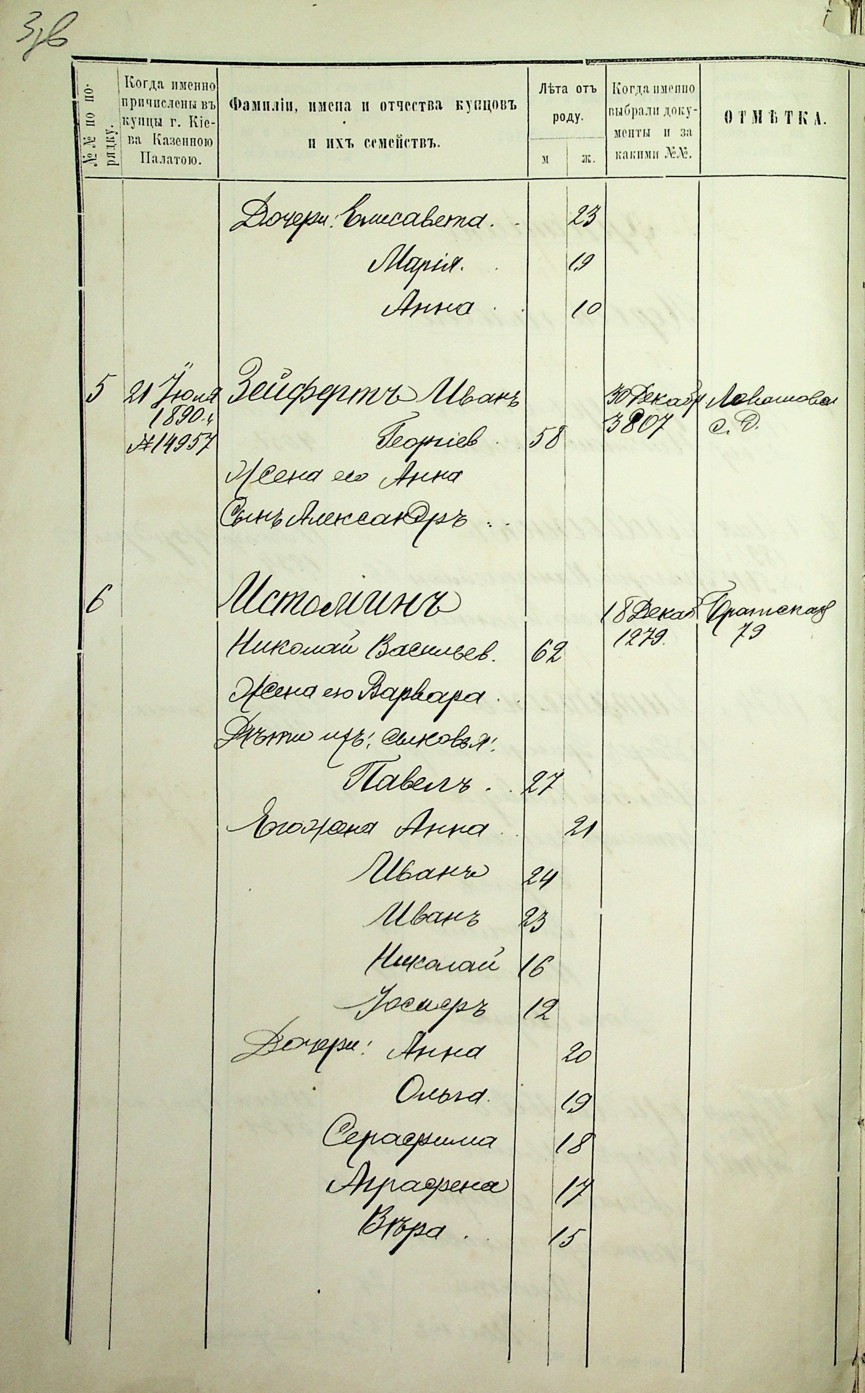 Зув
№№ по по-
рядку.
Когда именно
причислены въ
купцы г. Кіе-
ва Казенною
Палатою.
Фамиліи, имена и отчества купцовъ
и ихъ семействъ.
Лѣта отъ
роду.
м
ж.
Когда именно
выбрали доку-
менты и за
какими №№.
ОТМѢТКА.
Дочери: Елисавета. 23
Марія. 19
Анна 10
5 21 Іюля Зейфертъ Иванъ 30 Декабр
1890 г. Георгіев 58 3807 с. д.
№ 14957
Жена его Анна
Сынъ Александръ
6 Истоминъ 18 Декаб Братская
Николай Васильев. 62 1279. 79
Жена его Варвара
Дѣти ихъ: сыновья:
Павелъ. 27
Его жена Анна 21
Иванъ 24
Иванъ 23
Николай 16
Іосифъ 12
Дочери: Анна 20
Ольга. 19
Серафима 18
Аграфена 17
Вѣра 15